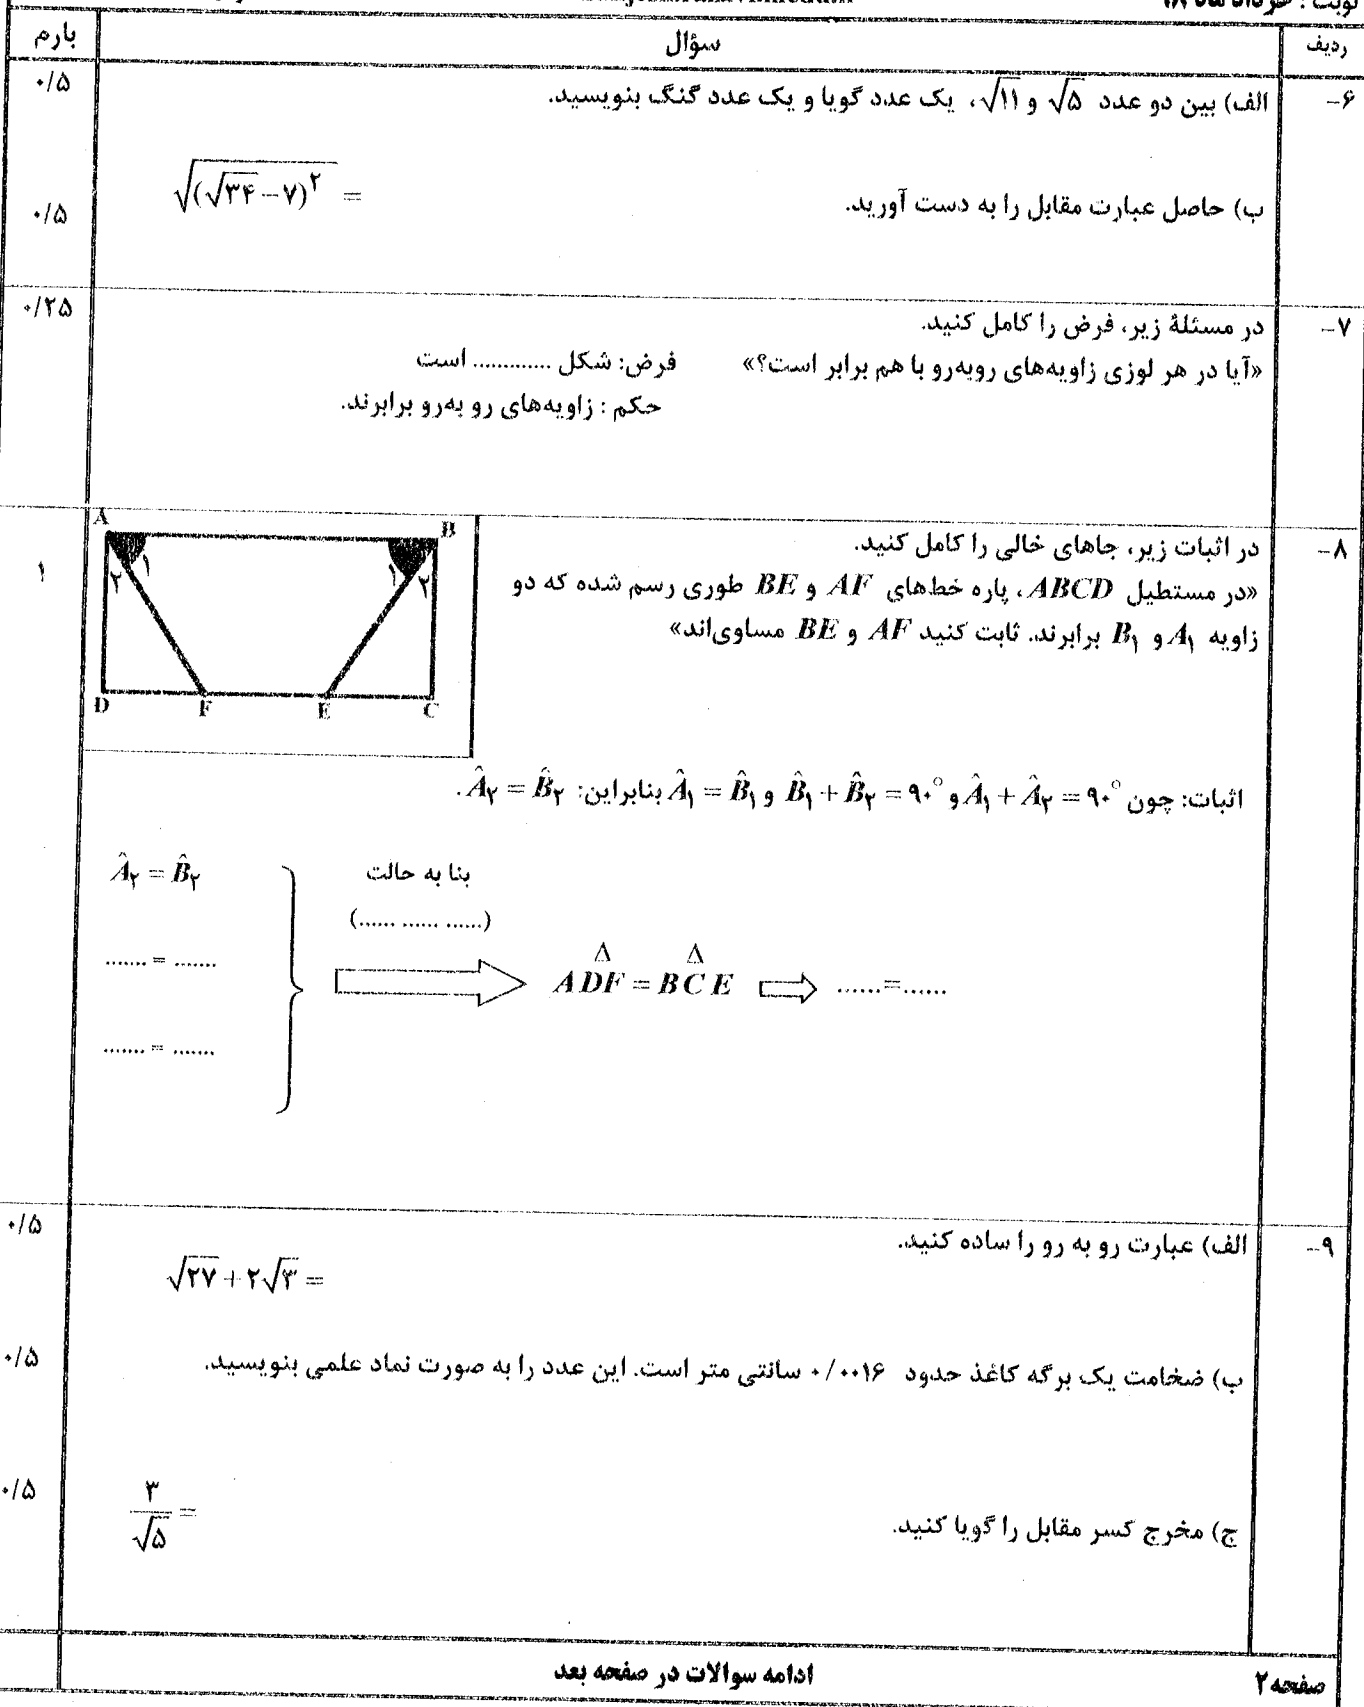 ردیف سؤال بارم
۶- الف) بین دو عدد √۵ و √۱۱، یک عدد گویا و یک عدد گنگ بنویسید. ۰/۵
ب) حاصل عبارت مقابل را به دست آورید. √(√۳۴-۷)^۲ = ۰/۵
۷- در مسئلهٔ زیر، فرض را کامل کنید. ۰/۲۵
«آیا در هر لوزی زاویه‌های روبه‌رو با هم برابر است؟» فرض: شکل ............. است
حکم : زاویه‌های رو به‌رو برابرند.
۸- در اثبات زیر، جاهای خالی را کامل کنید. ۱
«در مستطیل ABCD، پاره خط‌های AF و BE طوری رسم شده که دو
زاویه A₁ و B₁ برابرند. ثابت کنید AF و BE مساوی‌اند»
A B
۲ ۱ ۱ ۲
D F E C
اثبات: چون Â₁ + Â₂ = ۹۰° و B̂₁ + B̂₂ = ۹۰° و Â₁ = B̂₁ بنابراین: Â₂ = B̂₂ .
Â₂ = B̂₂ بنا به حالت
(...... ...... ......)
....... = ....... ADF = BCE ......=......
Δ Δ
....... = .......
۹- الف) عبارت رو به رو را ساده کنید. ۰/۵
√۲۷ + ۲√۳ =
ب) ضخامت یک برگه کاغذ حدود ۰/۰۰۱۶ سانتی متر است. این عدد را به صورت نماد علمی بنویسید. ۰/۵
ج) مخرج کسر مقابل را گویا کنید. ۳/√۵ = ۰/۵
صفحه ۲ ادامه سوالات در صفحه بعد